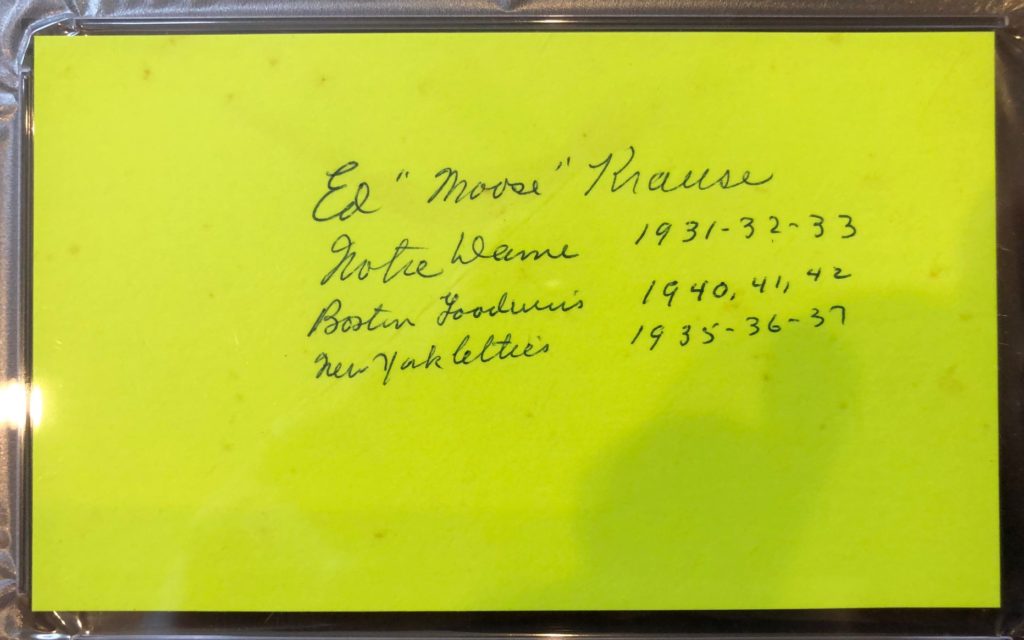 Ed "Moose" Krause
Notre Dame 1931-32-33
Boston Goodwins 1940, 41, 42
New York Celtics 1935-36-37